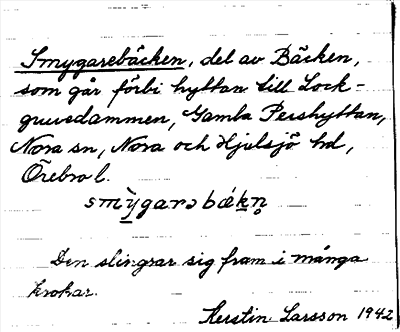 Smygarebäcken, del av Bäcken,
som går förbi hyttan till Lock-
gruvedammen, Gamla Pershyttan,
Nora sn, Nora och Hjulsjö hd,
Örebro l.
smỳgarə bǽkn̥
Den slingrar sig fram i många
krokar.
Kerstin Larsson 1942